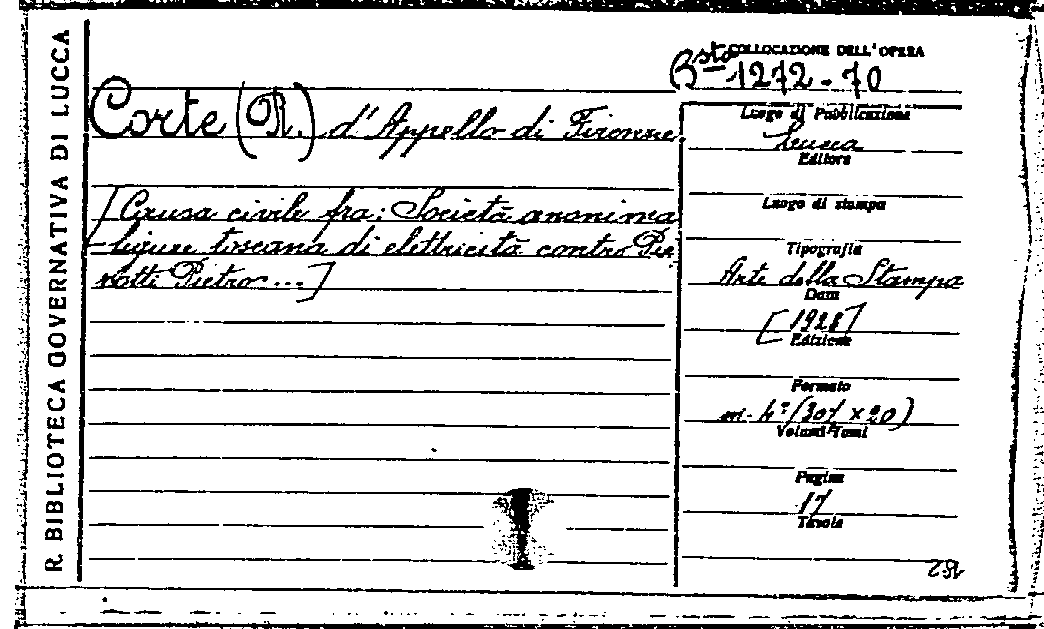 R. BIBLIOTECA GOVERNATIVA DI LUCCA
COLLOCAZIONE DELL'OPERA
Bsta 1272-70
Corte (R.) d'Appello di Firenze.
[Causa civile fra: Società anonima
ligure toscana di elettricità contro Pie
rotti Pietro...]
Luogo di Pubblicazione
Lucca
Editore
Luogo di stampa
Tipografia
Arte della Stampa
Data
[1928]
Edizione
Formato
m-4° (30½ x 20)
Volumi Tomi
Pagine
17
Tavole